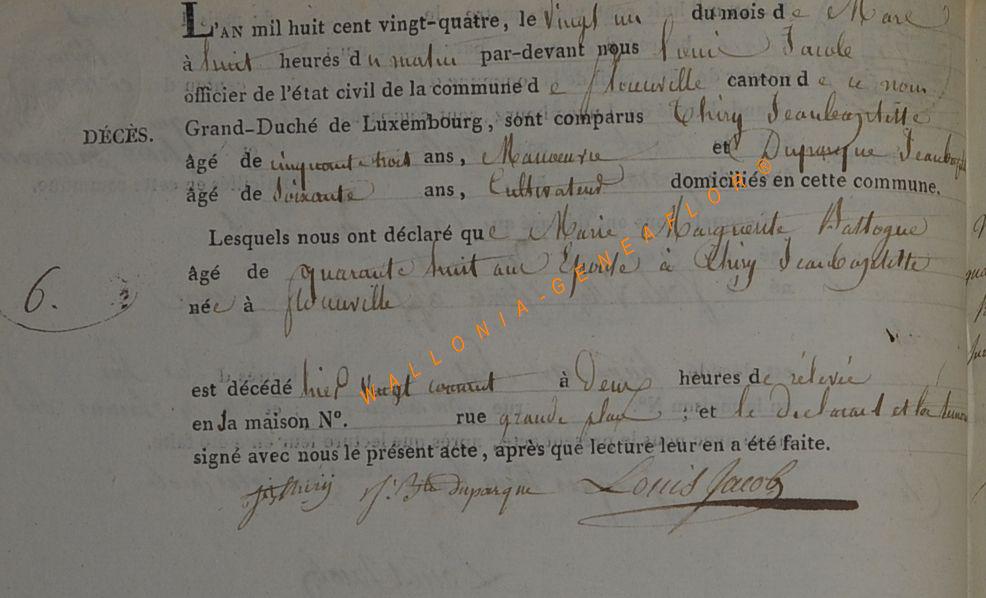 L'AN mil huit cent vingt-quatre, le vingt un du mois de Mars
à huit heures du matin par-devant nous Louis Jacob
officier de l'état civil de la commune de florenville canton de ce nom
Grand-Duché de Luxembourg, sont comparus Thiry Jeanbaptiste
DÉCÈS.
âgé de cinquante trois ans, Manoeuvre et Duparque Jeanbaptiste
âgé de Soixante ans, Cultivateur domiciliés en cette commune.
Lesquels nous ont déclaré que Marie Marguerite
âgé de quarante huit ans Epouse à Thiry Jeanbaptiste
6.
née à florenville
est décédé hier vingt courant à Deux heures de relevée
en la maison N°. rue grande place ; et le declarant et les temoins
signé avec nous le présent acte, après que lecture leur en a été faite.
Thiry J. Bte duparque Louis Jacob
WALLONIA-GENEAFLOR®